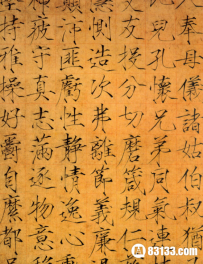 入奉母儀諸姑伯叔猶
兒孔懷兄弟同氣連
交友投分切磨箴規仁
惻造次弗離節義廉
沛匪虧性靜情逸心
神疲守真志滿逐物意移
持雅操好爵自縻都
83133.com